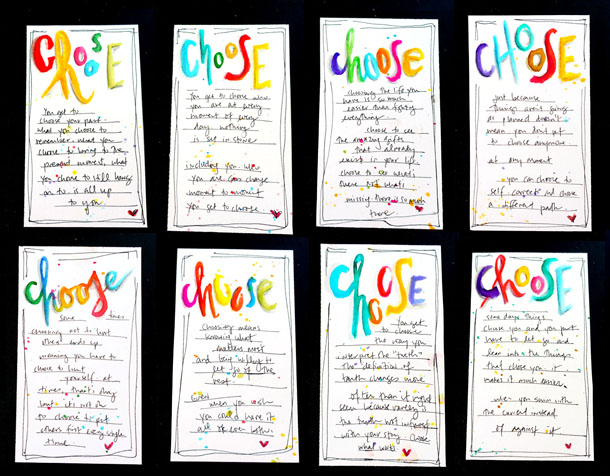 CHOOSE
You get to
choose your past.
what you choose to
remember. what you
choose to bring to the
present moment, what
you choose to still hang
on to is all up
to you.
CHOOSE
You get to choose who
you are at every
moment of every
day. nothing
is set in stone
including you. who
you are can change
moment to moment
you get to choose.
choose
choosing the life you
have is so much
easier than fighting
everything
choose to see
the amazing gifts
that already
exists in your life
choose to see what's
there not what's
missing. there is so much
there.
CHOOSE
just because
things aren't going
as planned doesn't
mean you don't get
to choose anymore
at any moment
you can choose to
self correct and choose
a different path.
choose
some times
choosing not to hurt
others ends up
meaning you have to
choose to hurt
yourself at
times, that's okay
but it's not ok
to choose to put
others first every single
time.
choose
choosing means
knowing what
matters most
and being willing to
let go of the
rest.
Even
when you wish
you could have it
all or even both.
CHOOSE
You get
to choose
the way you
interpret the "truth".
the definition of
truth changes more
often than it might
seem because
the truth
with your story. choose
what
CHOOSE
some days things
choose you and you just
have to let go and
lean into the things
that chose you. it
makes it much easier.
when you swim with
the current instead
of against it